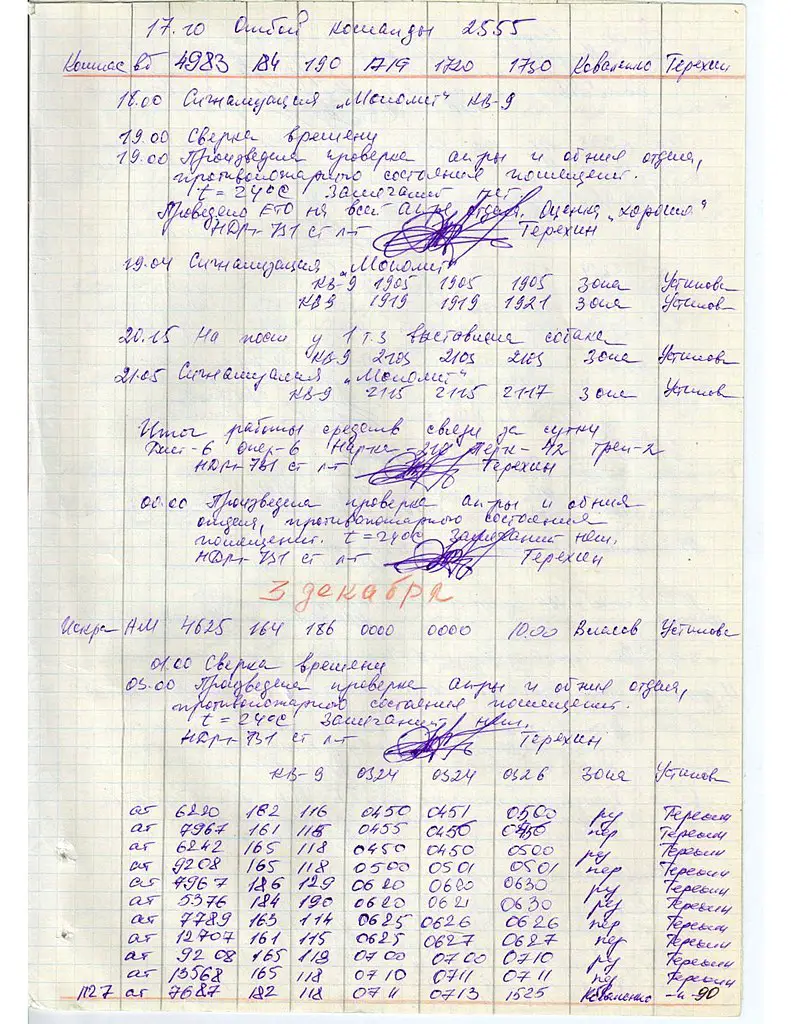 17.10 Отбой команды 2555
Компас вб 4983 184 190 1719 1720 1730 Коваленко Терехин
18.00 Сигнализация „Монолит" КВ-9
19.00 Сверка времени
19.00 Произведена проверка ап-ры и обния отдела,
противопожарного состояния помещений.
t = 24°С Замечаний нет
Проведено ЕТО на всей ап-ре отдела. Оценка „хорошо"
НДР-731 ст л-т Терехин
19.04 Сигнализация „Монолит"
КВ-9 1905 1905 1905 Зона Устинов
КВ9 1919 1919 1921 Зона Устинов
20.15 На пост у 1 т.з выставлена собака
КВ-9 2103 2103 2103 Зона Устинов
21.05 Сигнализация „Монолит"
КВ-9 2115 2115 2117 Зона Устинов
Итог работы средств связи за сутки
-6 Опер-6 -42 Трен-2
НДР-731 ст л-т Терехин
00.00 Произведена проверка ап-ры и обния
отдела, противопожарного состояния
помещений. t = 24°С Замечаний нет.
НДР-731 ст л-т Терехин
3 декабря
Искра АМ 4625 164 186 0000 0000 10.00 Власов Устинов
01.00 Сверка времени
03.00 Произведена проверка ап-ры и обния отдела,
противопожарного состояния помещений.
t = 24°С Замечаний нет.
НДР-731 ст л-т Терехин
КВ-9 0324 0324 0326 Зона Устинов
ат 6220 182 116 0450 0451 0500 ру Терехин
ат 7967 161 115 0455 0450 пер Терехин
ат 6242 165 118 0450 0450 0500 ру Терехин
ат 9208 165 118 0500 0501 0501 пер Терехин
ат 4967 186 129 0620 0620 0630 ру Терехин
ат 5376 184 190 0620 0621 0630 ру Терехин
ат 7789 163 114 0625 0626 0626 пер Терехин
ат 12707 161 115 0625 0627 0627 пер Терехин
ат 9208 165 118 0700 0700 0710 ру Терехин
ат 13568 165 118 0710 0711 0711 ру Терехин
1127 ат 7687 182 118 0711 0713 1525 Коваленко -и- 90